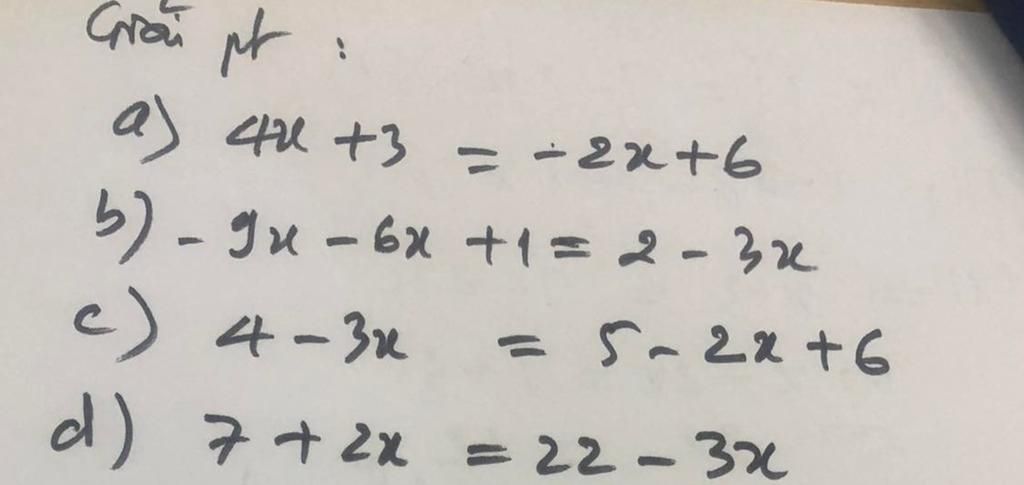 Giải pt :
a) 4x + 3 = -2x + 6
b) - 9x - 6x + 1 = 2 - 3x
c) 4 - 3x = 5 - 2x + 6
d) 7 + 2x = 22 - 3x